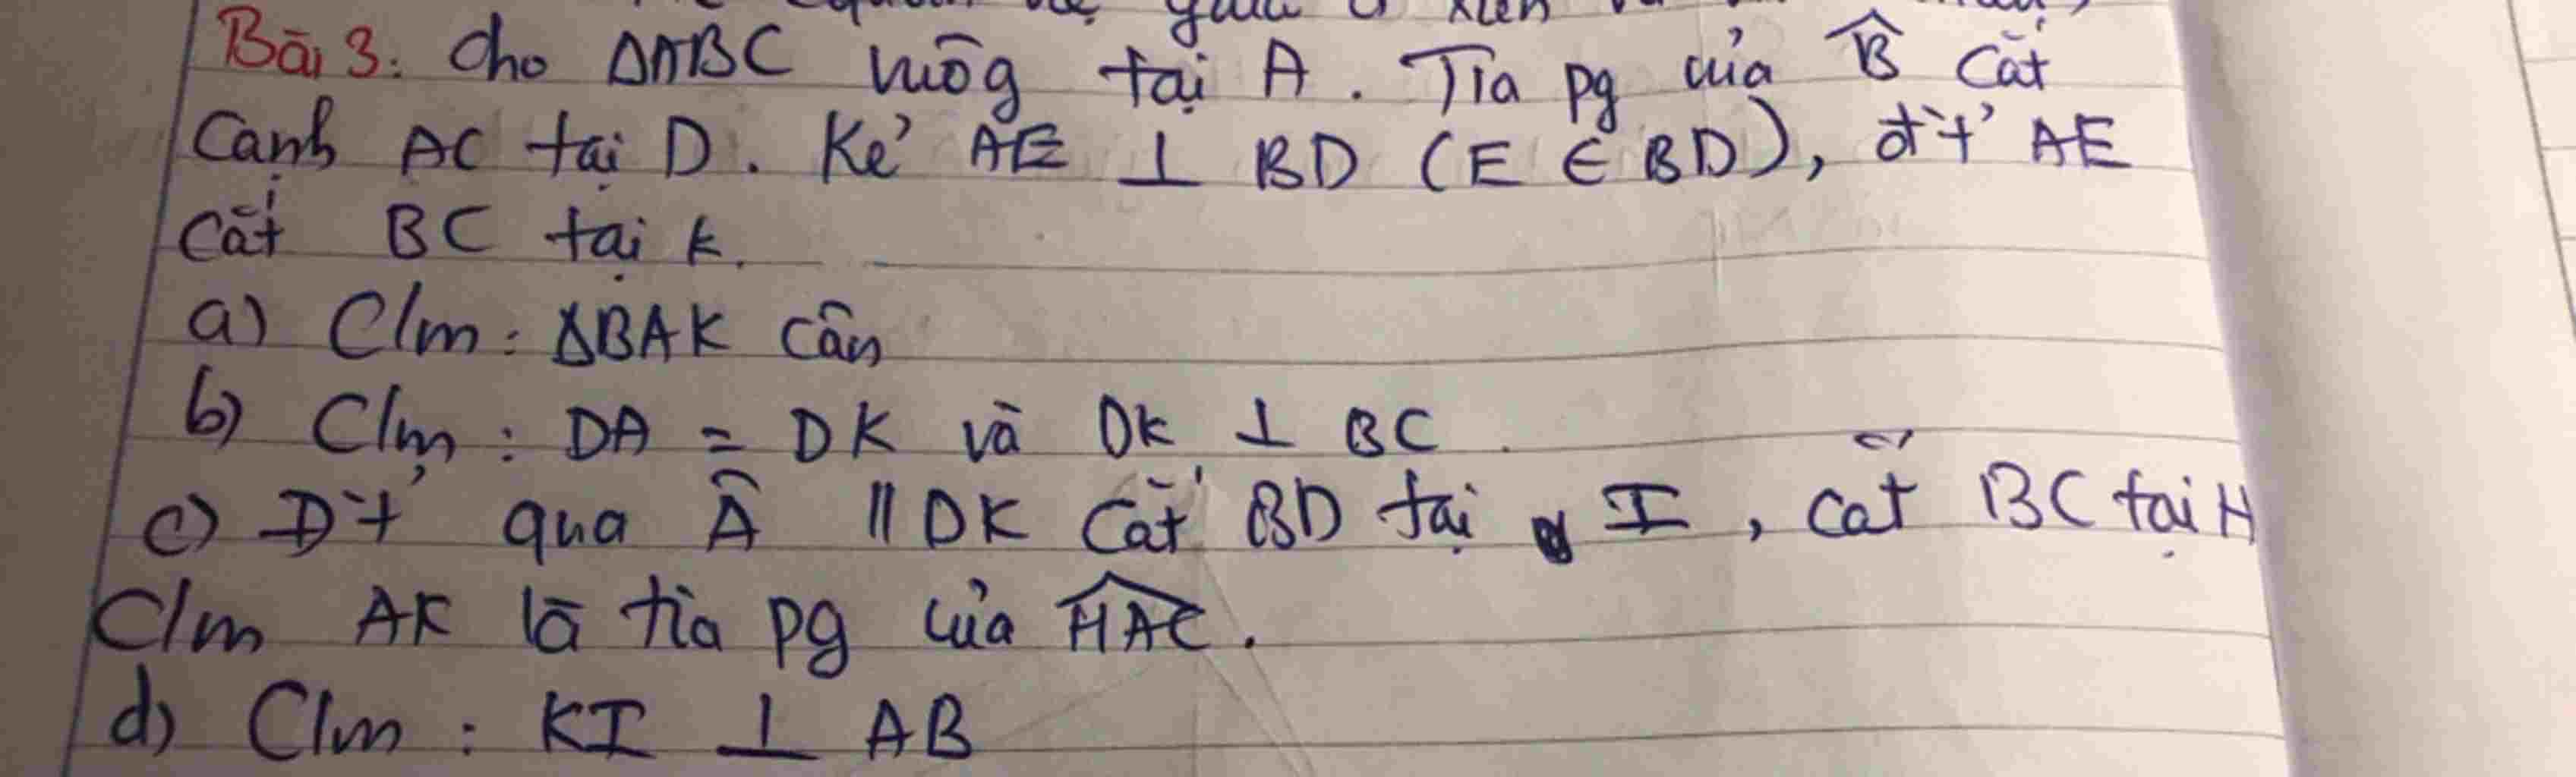 giữa xiên
Bài 3: Cho ΔABC vuôg tại A. Tia pg của B̂ cắt
cạnh AC tại D. Kẻ AE ⊥ BD (E ∈ BD), đ't' AE
cắt BC tại K.
a) C/m: ΔBAK cân
b) C/m: DA = DK và DK ⊥ BC.
c) Đ't' qua Â // DK cắt BD tại I, cắt BC tại H
C/m AK là tia pg của HAC.
d) C/m: KI ⊥ AB